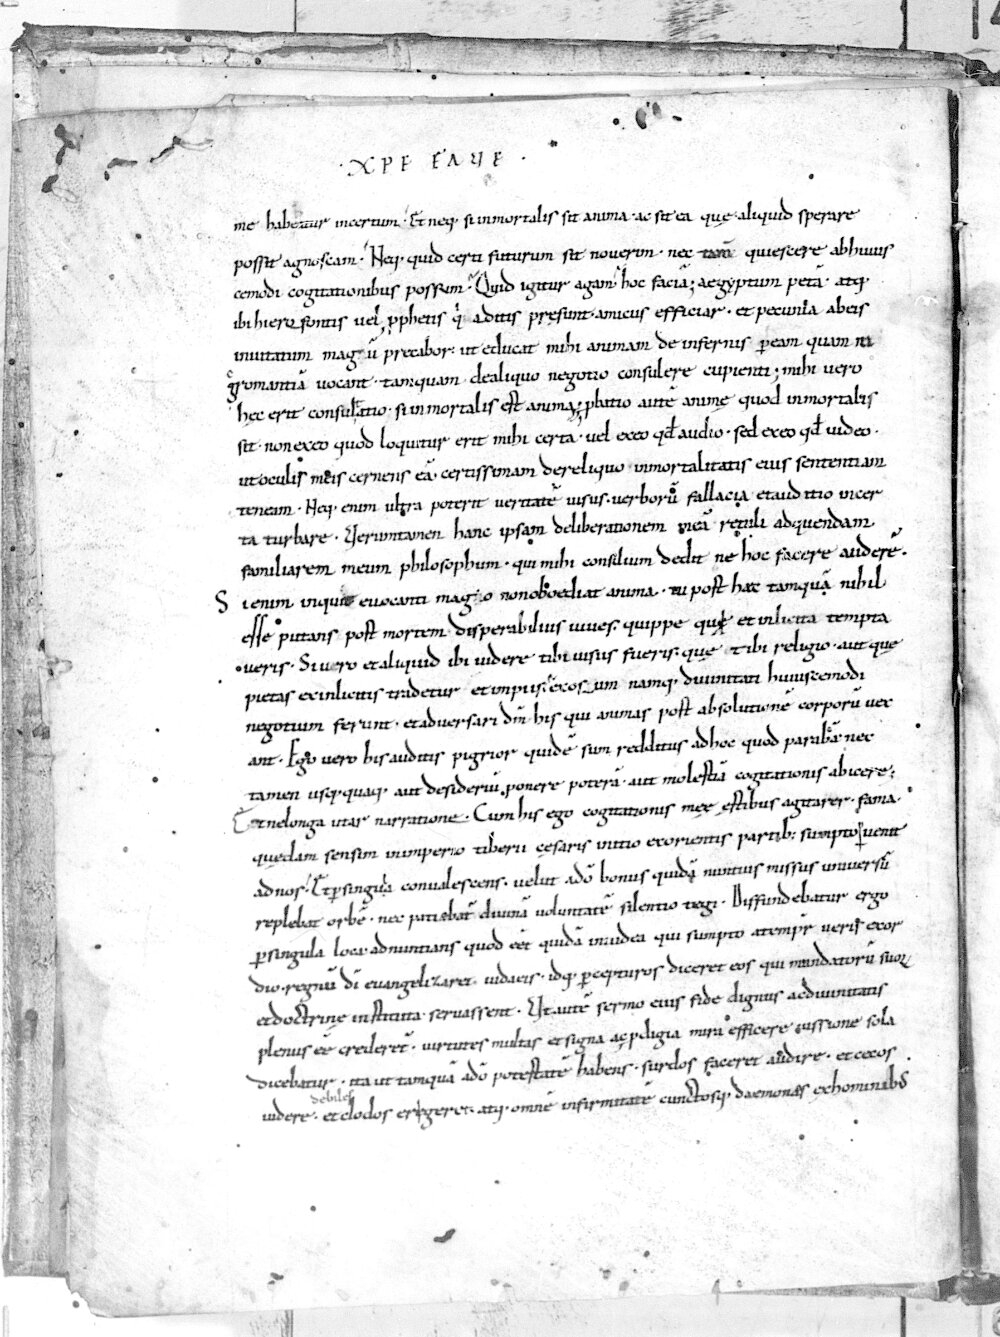 · XPE FAUE ·
me habetur incertum · Et neq; si inmortalis sit anima · ac sit ea que aliquid sperare
possit agnoscam · Neq; quid certi futurum sit noverim · nec tam quiescere abhuius
cemodi cogitationibus possum · Quid igitur agam · hoc faciā; aegyptum petā · atq;
ibi hierofontis vel pphetis q̄ aditis presunt · amicus efficiar · et pecunia abeis
invitatum magū precabor · ut educat mihi animam de infernis peam quam ni
gromantiā vocant · tamquam dealiquo negotio consulere cupienti; mihi vero
hec erit consultatio · si inmortalis est anima; platio autē anime quod inmortalis
sit · non exeo quod loquitur erit mihi certa · vel exeo qđ audio · sed exeo qđ video ·
ut oculis meis cernens eā certissimam dereliquo inmortalitatis eius sententiam
teneam · Neq; enim ultra poterit veritatē visus · verborū fallacia et auditio incer
ta turbare · Verumtamen hanc ipsam deliberationem meā retuli adquendam
familiarem meum philosophum · qui mihi consilium dedit ne hoc facere auderē ·
Si enim inquit evocanti mago non oboediat anima · tu post hac tamquā nihil
esse putans post mortem disperabilius vives · quippe qui et inlicita tempta
veris · Si vero et aliquid ibi videre tibi visus fueris · que tibi religio · aut que
pietas exinlicitis tradetur et impiis · exosum namq; divinitati huiuscemodi
negotium ferunt · et adversari dm̄ his qui animas post absolutionē corporū vex
ant · Ego vero his auditis pigrior quidē sum redditus adhoc quod parabā nec
tamen usq;quaq; aut desideriū ponere poterā · aut molestiā cogitationis abicere;
Et nelonga utar narratione · Cum his ego cogitationis mee estibus agitarer · fama
quedam sensim inimperio tiberii cesaris initio exorientis partib; sumpto pvenit
adnos · Et p singula convalescens · velut adō bonus quidā nuntius missus universū
replebat orbē · nec patiebat divinā voluntatē silentio tegi · Diffundebatur ergo
p singula loca adnuntians quod eēt quidā iniudea qui sumpto atempr veris exor
dio · regnū dī evangelizaret iudaeis · idq; pcepturos diceret eos qui mandatorū suor
et doctrine instituta servassent · Ut autē sermo eius fide dignus acdivinitatis
plenus eē crederet · virtutes multas et signa ac pdigia mira efficere iussione sola
dicebatur · ita ut tamquā adō potestatē habens · surdos faceret audire · et cecos
debiles
videre · et clodos erigeret · atq; omnē infirmitatē cunctosq; daemones exhominib;